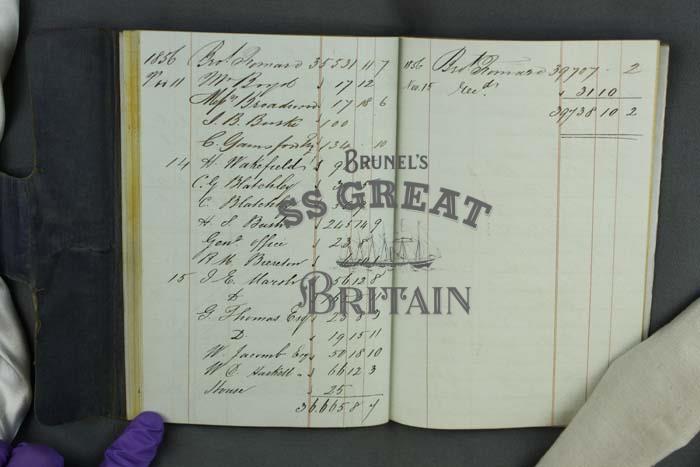 1856 Bro.t Forward 35531 11 7
Nov 11 Mr Boyd 17 12
Mess.rs Broadwood 17 18 6
J. B. Burke 100
C. Gainsford 134 10
14 H. Wakefield 9
C. G Blatchley
C. Blatchley
H. S. Burke 245 14 9
Gen.l Office 23
R. M. Brereton
15 J. E. Marsh 56 12 8
D.
G. Thomas Esq
D. 19 15 11
W. Jacomb Esq 50 18 10
W. D. Haskell 66 12 3
House 25
36665 8 7
1856 Bro.t Forward 39707 2
Nov. 15 31 10
39738 10 2
BRUNEL'S
SS GREAT
BRITAIN